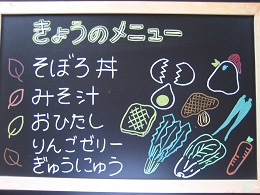 きょうのメニュー
そぼろ丼
みそ汁
おひたし
りんごゼリー
ぎゅうにゅう